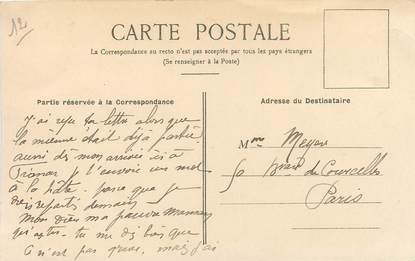 12
CARTE POSTALE
La Correspondance au recto n'est pas acceptée par tous les pays étrangers
(Se renseigner à la Poste)
Partie réservée à la Correspondance
Adresse du Destinataire
J'ai reçu ta lettre alors que
la mienne était déjà partie
mon arrivée ici à
je t'envoie un mot
à la hâte parce que je
dois repartir demain
Mon Dieu ma pauvre Maman
tu me dis que
n'est pas mais j'ai
Mme Meyer
50 de Courcelles
Paris